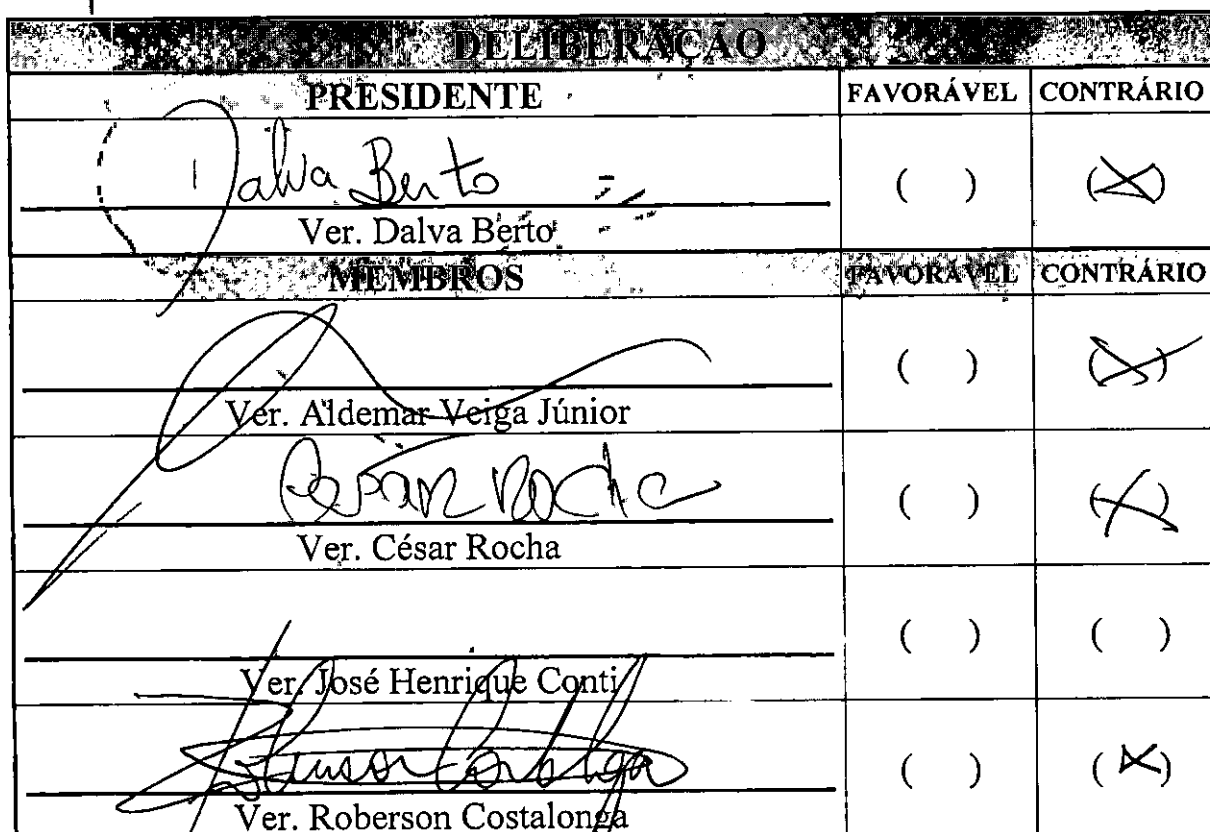 DELIBERAÇÃO
PRESIDENTE FAVORÁVEL CONTRÁRIO
Dalva Berto ( ) (X)
Ver. Dalva Berto
MEMBROS FAVORÁVEL CONTRÁRIO
( ) (X)
Ver. Aldemar Veiga Júnior
César Rocha ( ) (X)
Ver. César Rocha
( ) ( )
Ver. José Henrique Conti
( ) (X)
Ver. Roberson Costalonga